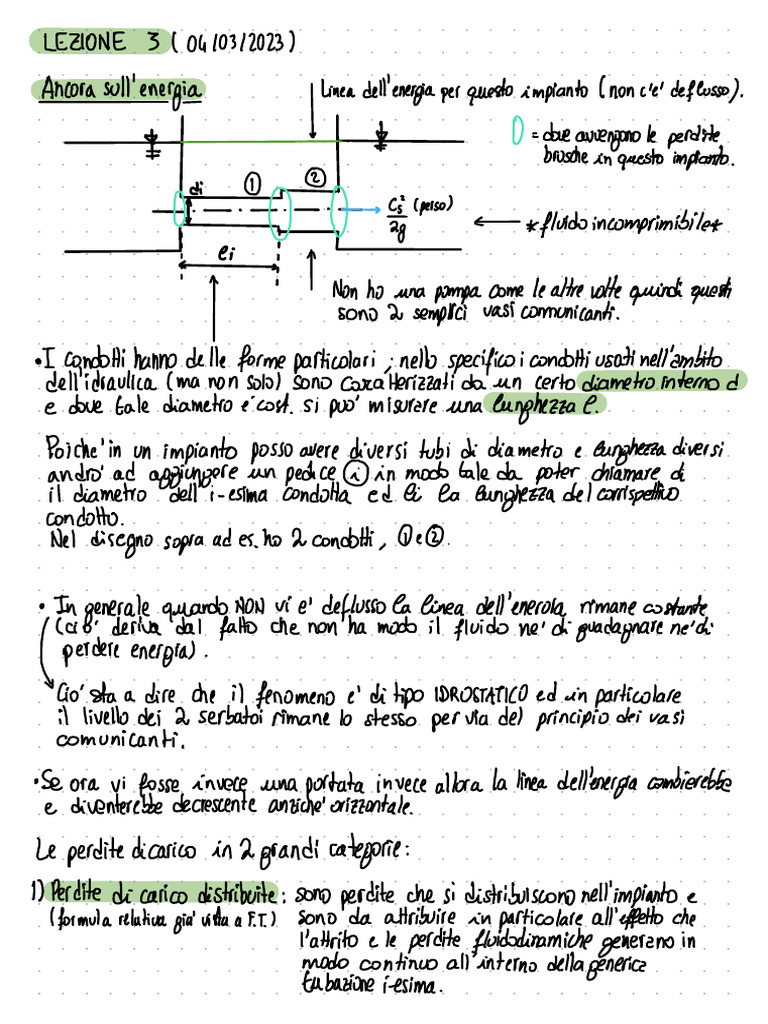 LEZIONE 3 (04/03/2023)
Ancora sull'energia
Linea dell'energia per questo impianto (non c'e' deflusso).
= dove avvengono le perdite
brusche in questo impianto.
di
1
2
Cs²/2g (perso)
*fluido incomprimibile*
li
Non ho una pompa come le altre volte quindi questi
sono 2 semplici vasi comunicanti.
• I condotti hanno delle forme particolari; nello specifico i condotti usati nell'ambito
dell'idraulica (ma non solo) sono caratterizzati da un certo diametro interno d
e dove tale diametro e' cost. si puo' misurare una lunghezza l.
Poiche' in un impianto posso avere diversi tubi di diametro e lunghezza diversi
andro' ad aggiungere un pedice i in modo tale da poter chiamare di
il diametro dell'i-esima condotta ed li la lunghezza del corrispettivo
condotto.
Nel disegno sopra ad es. ho 2 condotti, 1 e 2.
• In generale quando NON vi e' deflusso la linea dell'enerola rimane costante
(cio' deriva dal fatto che non ha modo il fluido ne' di guadagnare ne' di
perdere energia).
Cio' sta a dire che il fenomeno e' di tipo IDROSTATICO ed in particolare
il livello dei 2 serbatoi rimane lo stesso per via del principio dei vasi
comunicanti.
• Se ora vi fosse invece una portata invece allora la linea dell'energia cambierebbe
e diventerebbe decrescente anziche' orizzontale.
Le perdite di carico in 2 grandi categorie:
1) Perdite di carico distribuite: sono perdite che si distribuiscono nell'impianto e
(formula relativa gia' vista a F.T.) sono da attribuire in particolare all'effetto che
l'attrito e le perdite fluidodinamiche generano in
modo continuo all'interno della generica
tubazione i-esima.